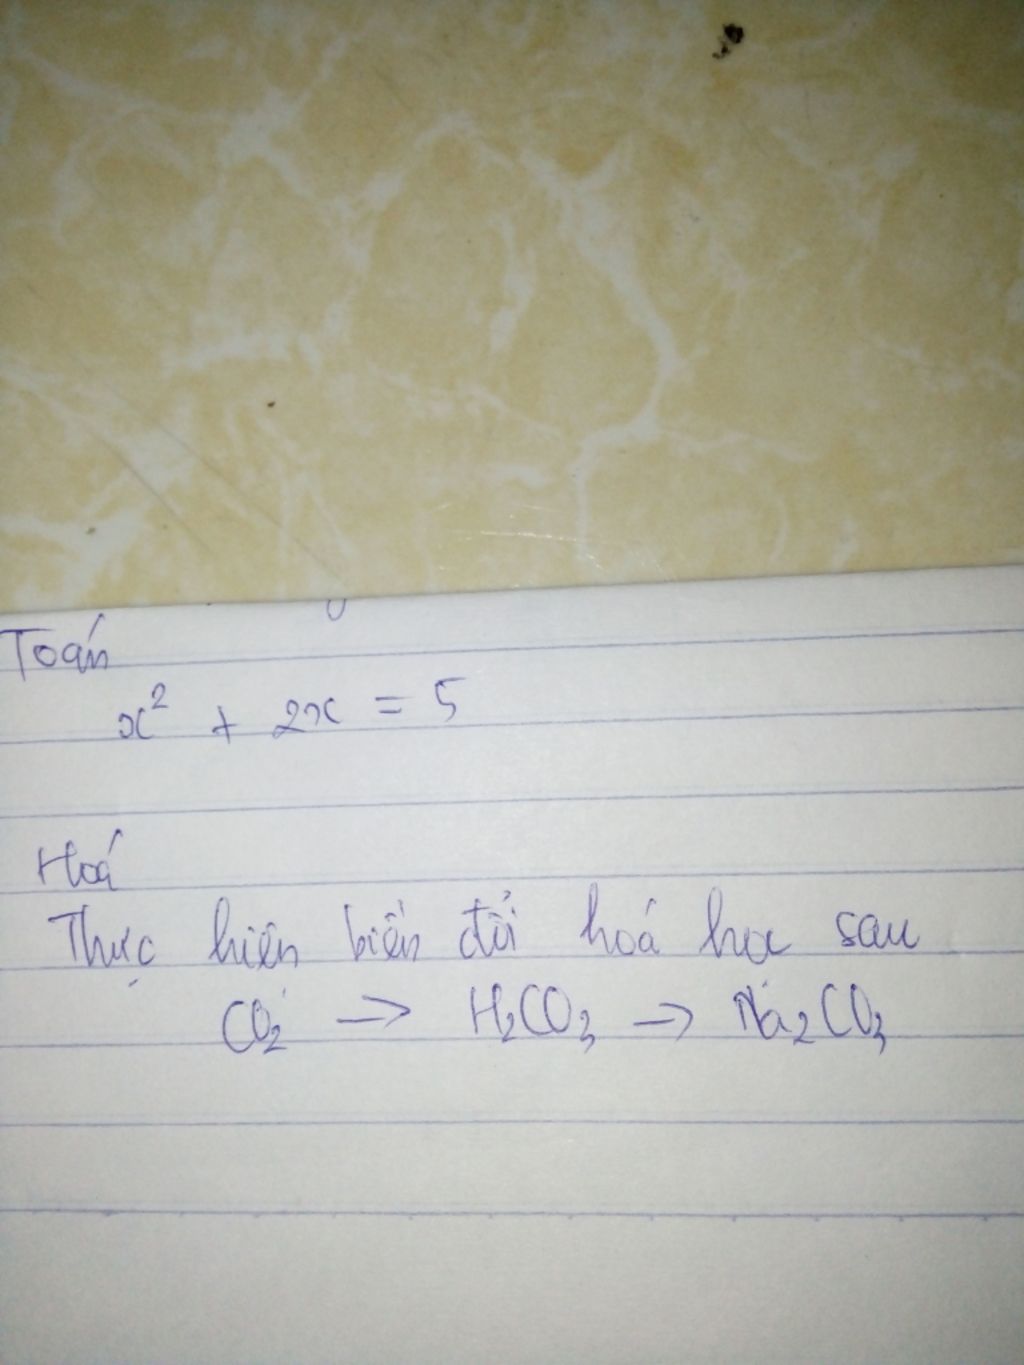 Toán
x² + 2x = 5
Hoá
Thực hiện biến đổi hoá học sau
CO₂ → H₂CO₃ → Na₂CO₃